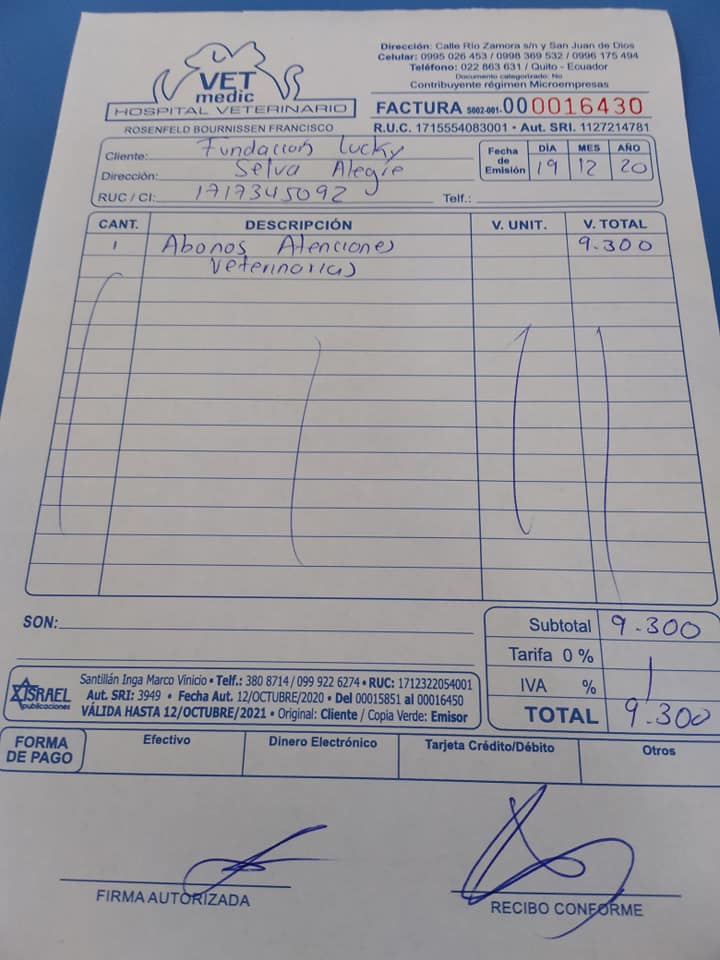 VET
medic
HOSPITAL VETERINARIO
ROSENFELD BOURNISSEN FRANCISCO
Dirección: Calle Río Zamora s/n y San Juan de Dios
Celular: 0995 026 453 / 0998 369 532 / 0996 175 494
Teléfono: 022 863 631 / Quito - Ecuador
Documento categorizado: No
Contribuyente régimen Microempresas
FACTURA S002-001-00 0016430
R.U.C. 1715554083001 • Aut. SRI. 1127214781
Cliente: Fundacion Lucky
Dirección: Selva Alegre
RUC / CI: 1717345092 Telf.:
Fecha de Emisión DÍA MES AÑO
19 12 20
CANT. DESCRIPCIÓN V. UNIT. V. TOTAL
1 Abonos Atenciones 9.300
Veterinarias
SON:
Subtotal 9.300
Tarifa 0 %
IVA %
TOTAL 9.300
ISRAEL
publicaciones
Santillán Inga Marco Vinicio • Telf.: 380 8714 / 099 922 6274 • RUC: 1712322054001
Aut. SRI: 3949 • Fecha Aut. 12/OCTUBRE/2020 • Del 00015851 al 00016450
VÁLIDA HASTA 12/OCTUBRE/2021 • Original: Cliente / Copia Verde: Emisor
FORMA DE PAGO
Efectivo Dinero Electrónico Tarjeta Crédito/Débito Otros
FIRMA AUTORIZADA RECIBO CONFORME